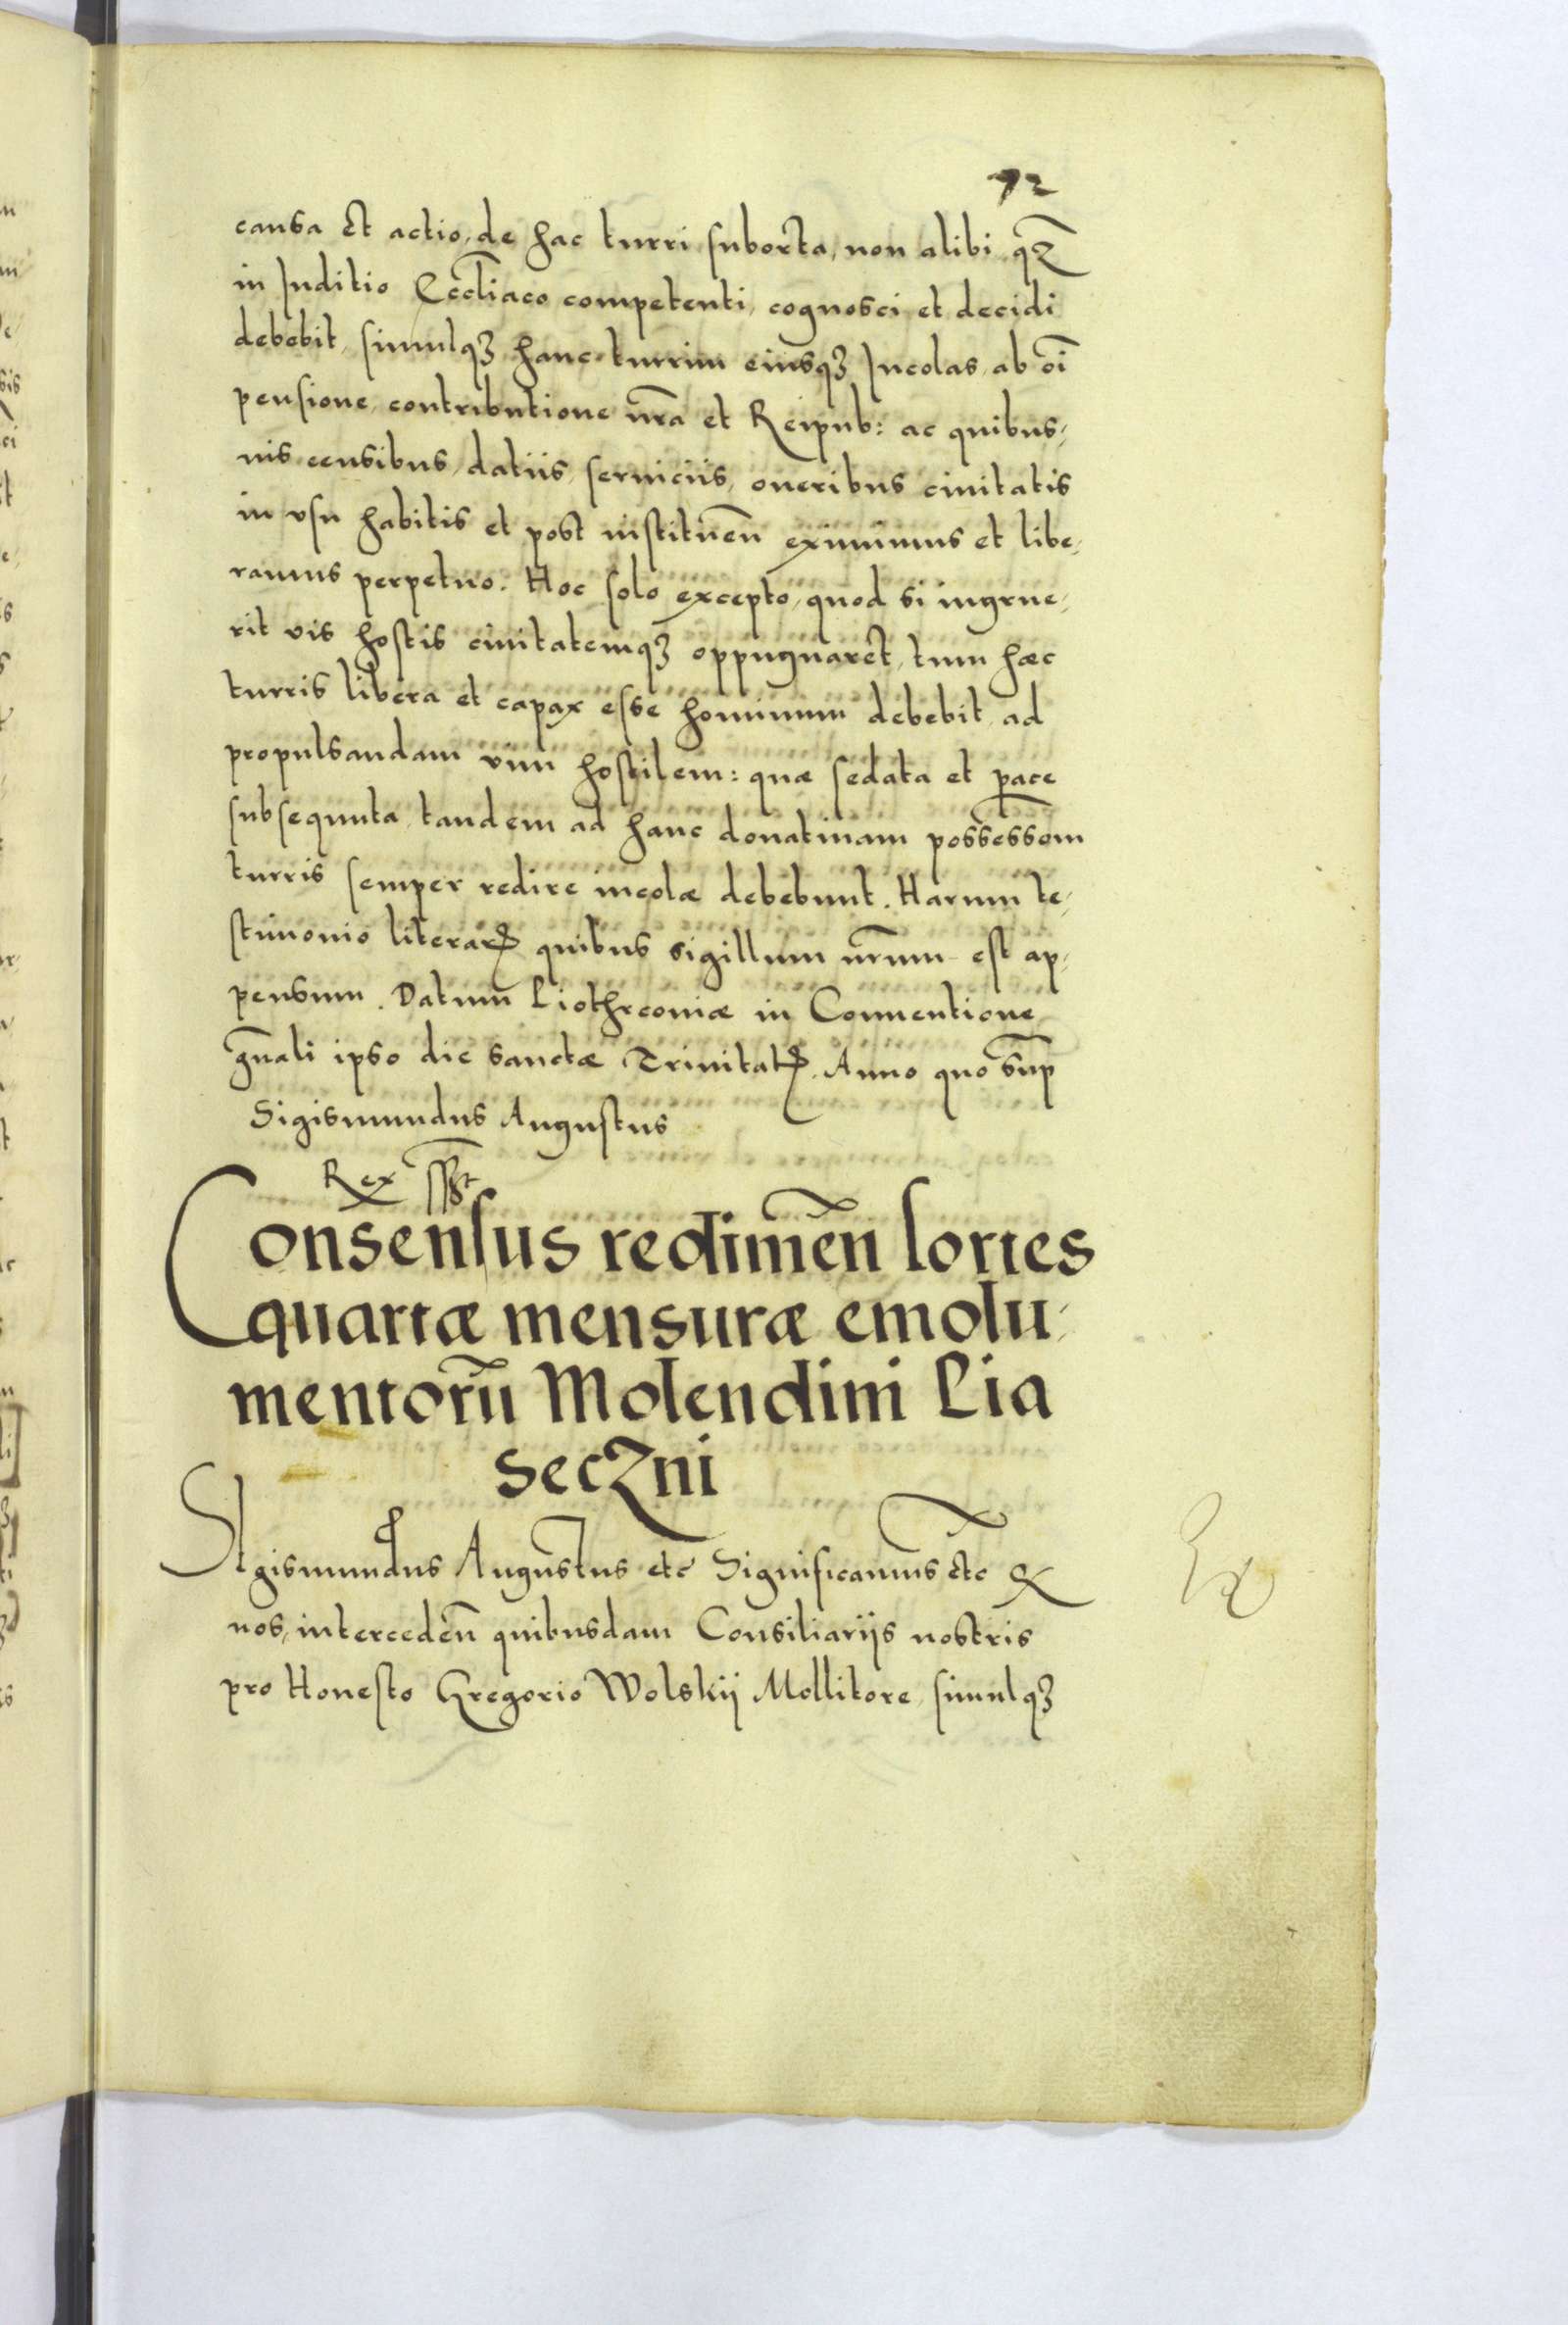 72
causa et actio, de hac turri suborta, non alibi qз
in Juditio Eccliaco competenti, cognosci et decidi
debebit, simulqз hanc turrim eiusqз Incolas, ab oi
pensione, contributione nra et Reipub: ac quibus,
uis censibus, datiis, seruiciis, oneribus ciuitatis
in usu habitis et post instituen eximimus et libe,
ramus perpetuo. Hoc solo excepto, quod si ingrue,
rit uis hostis ciuitatemqз oppugnaret, tum hæc
turris libera et capax esse hominum debebit, ad
propulsandam uim hostilem: quæ sedata et pace
subsequuta, tandem ad hanc donatiuam possessom
turris semper redire incolæ debebunt. Harum te,
stimonio literarꝝ quibus sigillum nrum est ap,
pensum. Datum Piothrcouiæ in Conuentione
gnali ipso die sanctæ Trinitatꝭ. Anno quo sup
Sigismundus Augustus
Rex sst
Consensus redimen sortes
quartæ mensuræ emolu,
mentoru Molendini Pia
seczni
Sigismundus Augustus etc Significamus etc Qz
nos, interceden quibusdam Consiliariis nostris
pro Honesto Gregorio Wolskij Mollitore, simulqз